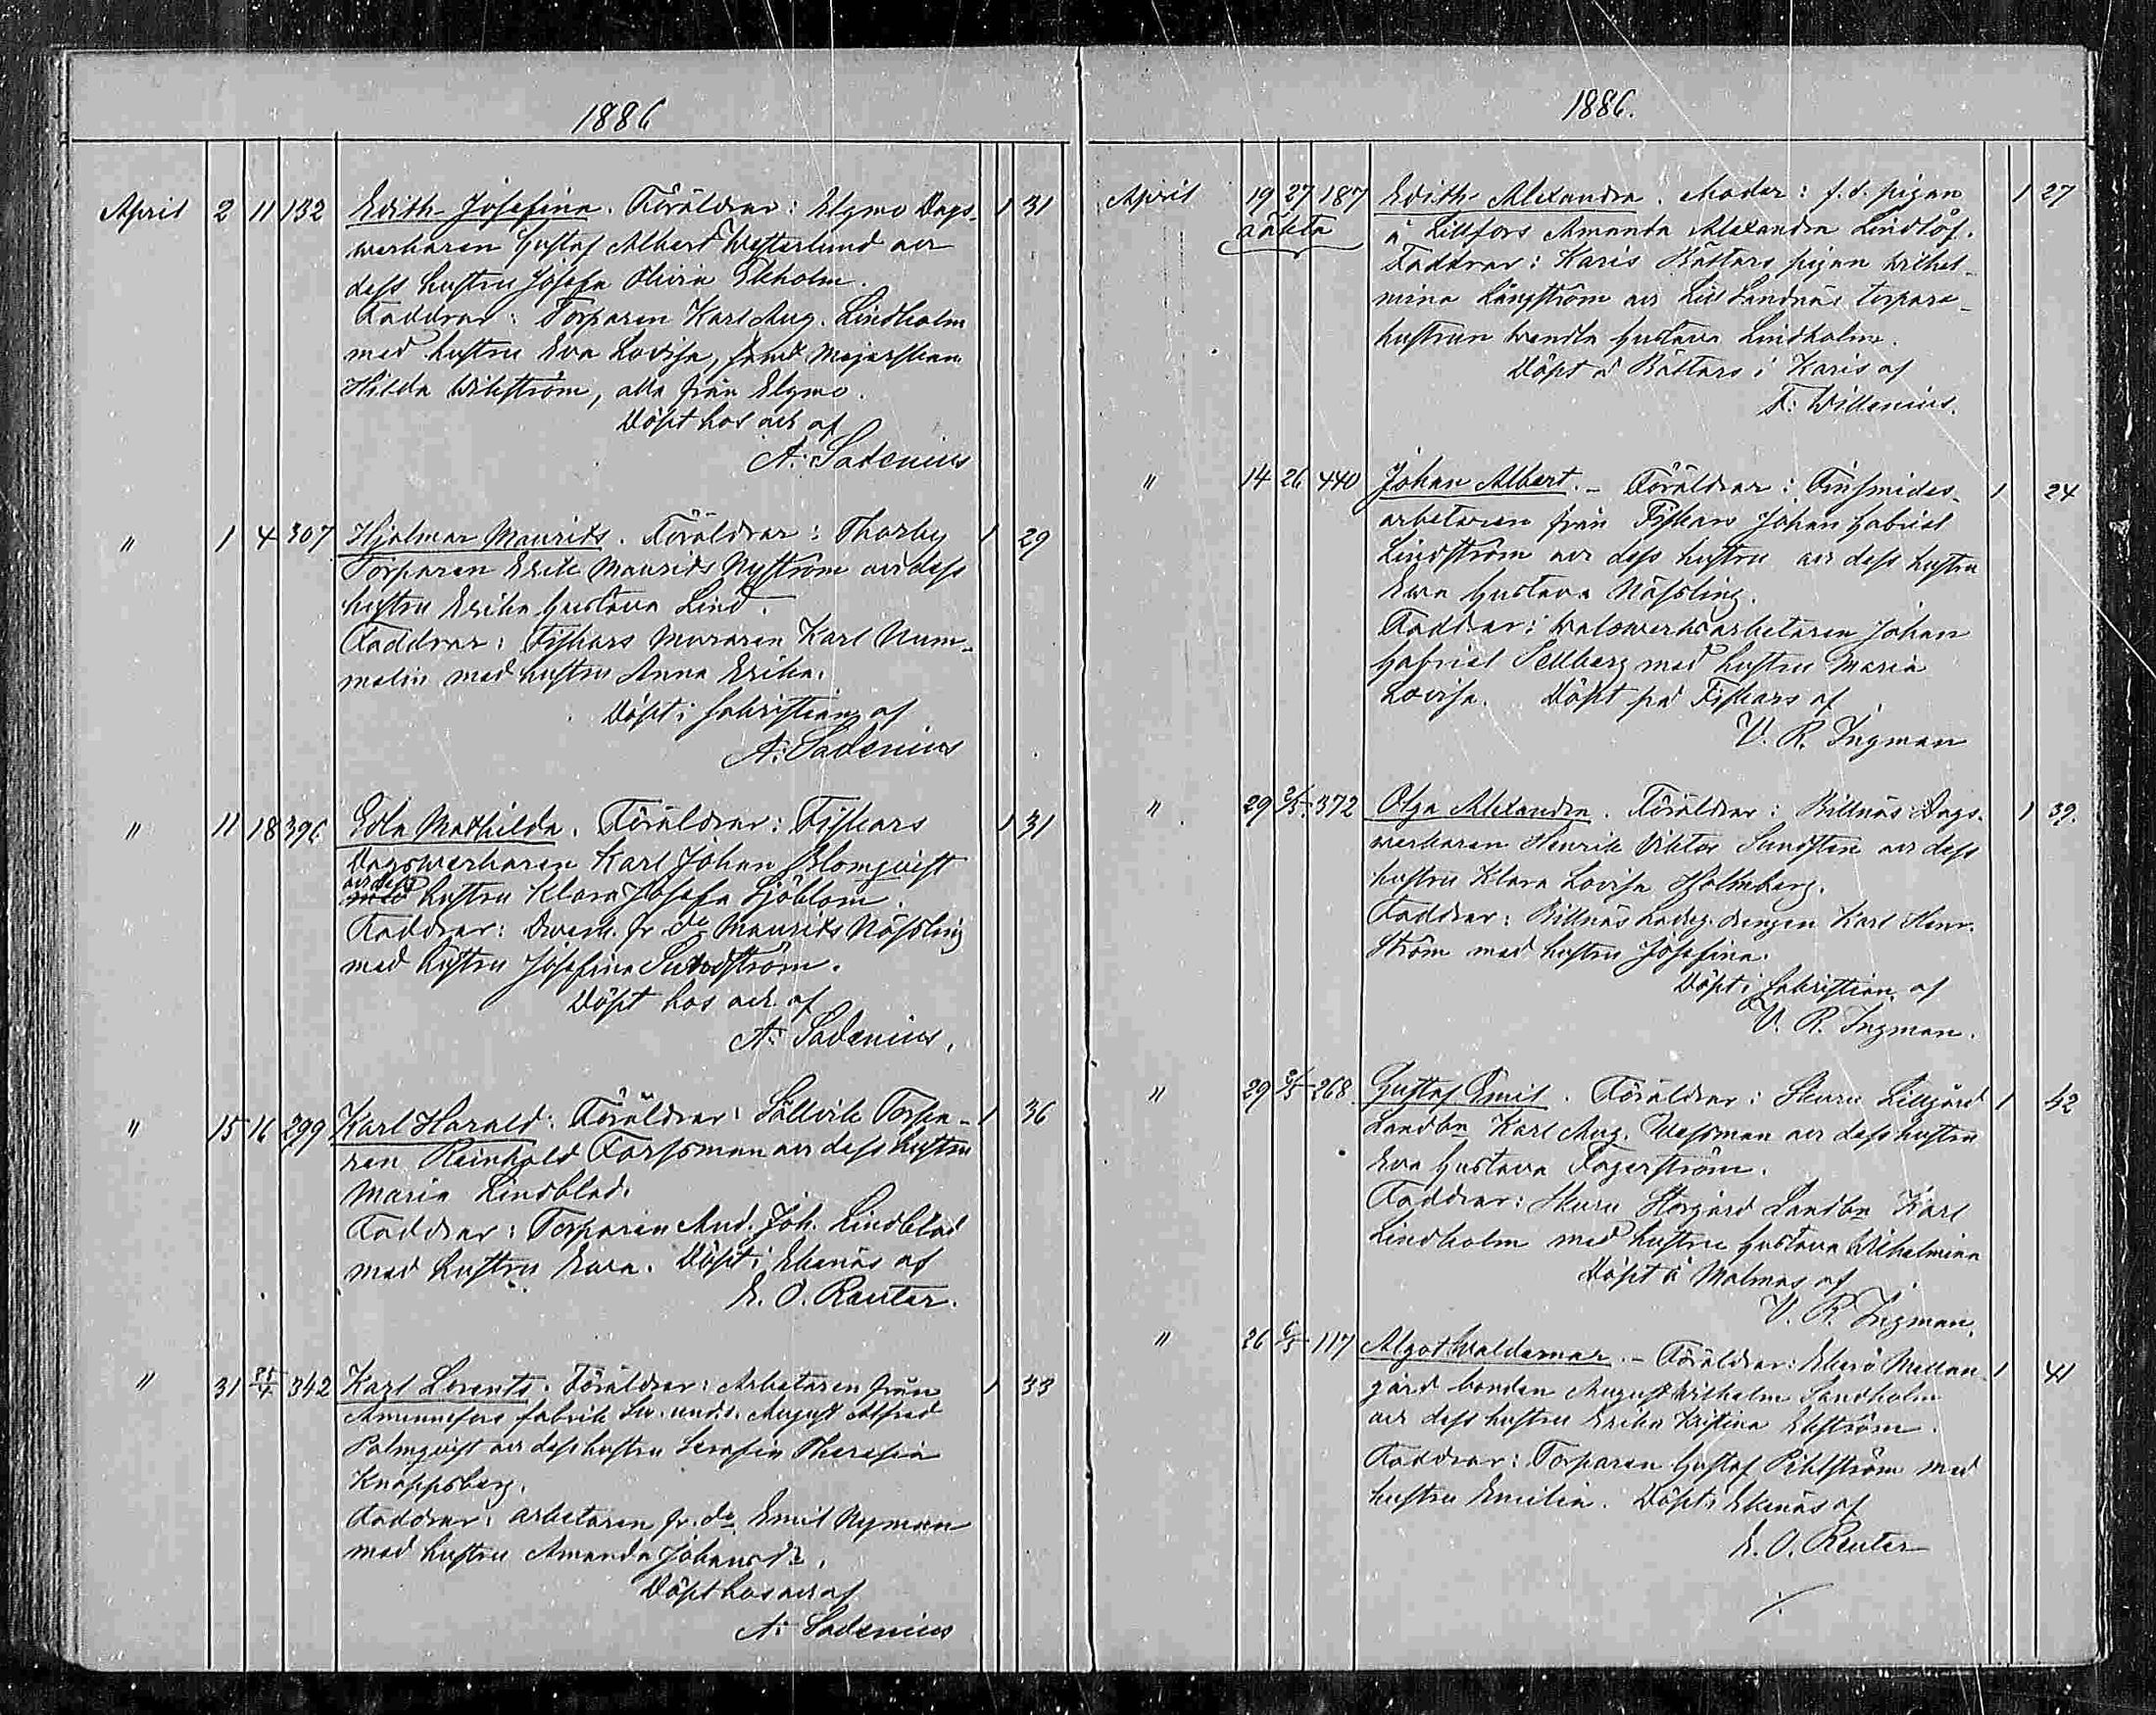 1886
April 2 11 132 Edith Josefina. Föräldrar: Elgmo Dags- 1 31
werkaren Gustaf Albert Westerlund och
dess hustru Josefa Olivia Ekholm.
Faddrar: Torparen Karl Aug. Lindholm
med hustru Eva Lovisa, samt Mejerskan
Hilda Wikström, alla från Elgmo.
Döpt hos och af
A. Sadenius
" 1 4 307 Hjalmar Maurits. Föräldrar: Thorby 1 29
Torparen Erik Maurits Nyström och dess
hustru Erika Gustava Lind.
Faddrar: Fiskars Muraren Karl Num-
melin med hustru Anna Erika.
Döpt i Sakristian af
A. Sadenius
" 11 18 396 Edla Mathilda. Föräldrar: Fiskars 1 31
Dagswerkaren Karl Johan Blomqvist
och dess
med hustru Klara Josefa Sjöblom.
Faddrar: Dwerk. fr. do Maurits Nässling
med hustru Josefina Sundström.
Döpt hos och af
A. Sadenius.
" 15 16 299 Karl Harald. Föräldrar: Sällvik Torpa- 1 36
ren Reinhold Forssman och dess hustru
Maria Lindblad.
Faddrar: Torparen And. Joh. Lindblad
med hustru Ewa. Döpt i Ekenäs af
E. O. Reuter.
" 31 25/4 342 Karl Lorents. Föräldrar: Arbetaren från 1 33
Åminnefors fabrik Sv. unds. August Alfred
Palmqvist och dess hustru Serafia Theresia
Knappsberg.
Faddrar: arbetaren fr. do Emil Nyman
med hustru Amanda Johansdr.
Döpt hos och af
A. Sadenius
1886.
April 19 27 187 Edith Alexandra. Moder: f.d. pigan 1 27
oäkta å Lillfors Amanda Alexandra Lindlöf.
Faddrar: Karis Båttars pigan Wilhel-
mina Långström och Lill Sandnäs torpare-
hustrun Wendla Gustava Lindholm.
Döpt å Båttars i Karis af
F. Willenius.
" 14 26 440 Johan Albert. - Föräldrar: Finsmides- 1 24
arbetaren från Fiskars Johan Gabriel
Lindström och dess hustru och dess hustru
Ewa Gustava Nässling.
Faddrar: Walswerksarbetaren Johan
Gabriel Sellberg med hustru Maria
Lovisa. Döpt på Fiskars af
V. R. Ingman
" 29 2/5 372 Olga Alexandra. Föräldrar: Billnäs Dags- 1 39.
werkaren Henrik Viktor Sundsten och dess
hustru Klara Lovisa Holmberg.
Faddrar: Billnäs Ladug. drengen Karl Henr.
Ström med hustru Josefina.
Döpt i Sakristian af
V. R. Ingman.
" 29 2/5 268 Gustaf Emil. Föräldrar: Skuru Lillgård 1 42
Landbn Karl Aug. Wessman och dess hustru
Eva Gustava Fagerström.
Faddrar: Skuru Storgård Landbn Karl
Lindholm med hustru Gustava Wilhelmina
Döpt å Malmas af
V. R. Ingman.
" 26 6/5 117 Algot Waldemar. - Föräldrar: Ekerö Mellan- 1 41
gård bonden August Wilhelm Sandholm
och dess hustru Erika Kristina Ekström.
Faddrar: Torparen Gustaf Pihlström med
hustru Emilia. Döpt i Ekenäs af
E. O. Reuter